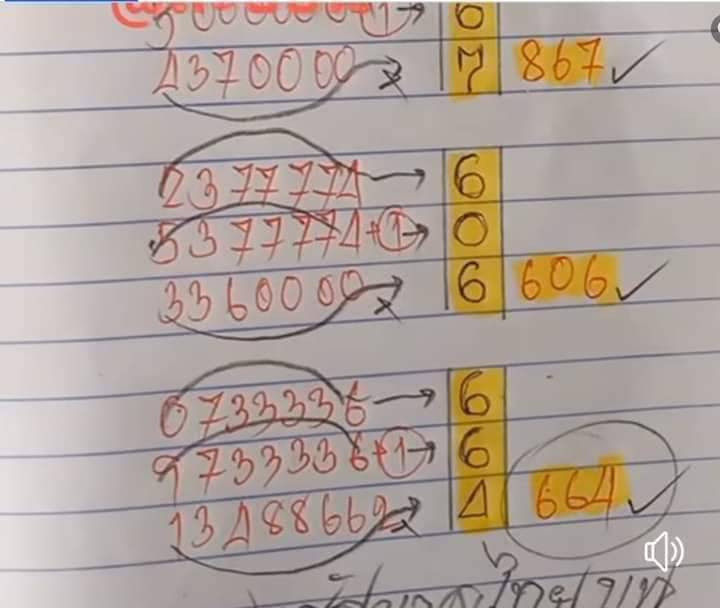 +1→ 6
4370000 → 7 867 ✓
2377774 → 6
5377774+1→ 0
3360000 → 6 606 ✓
6733336 → 6
9733336+1→ 6
13488662 → 4 664 ✓